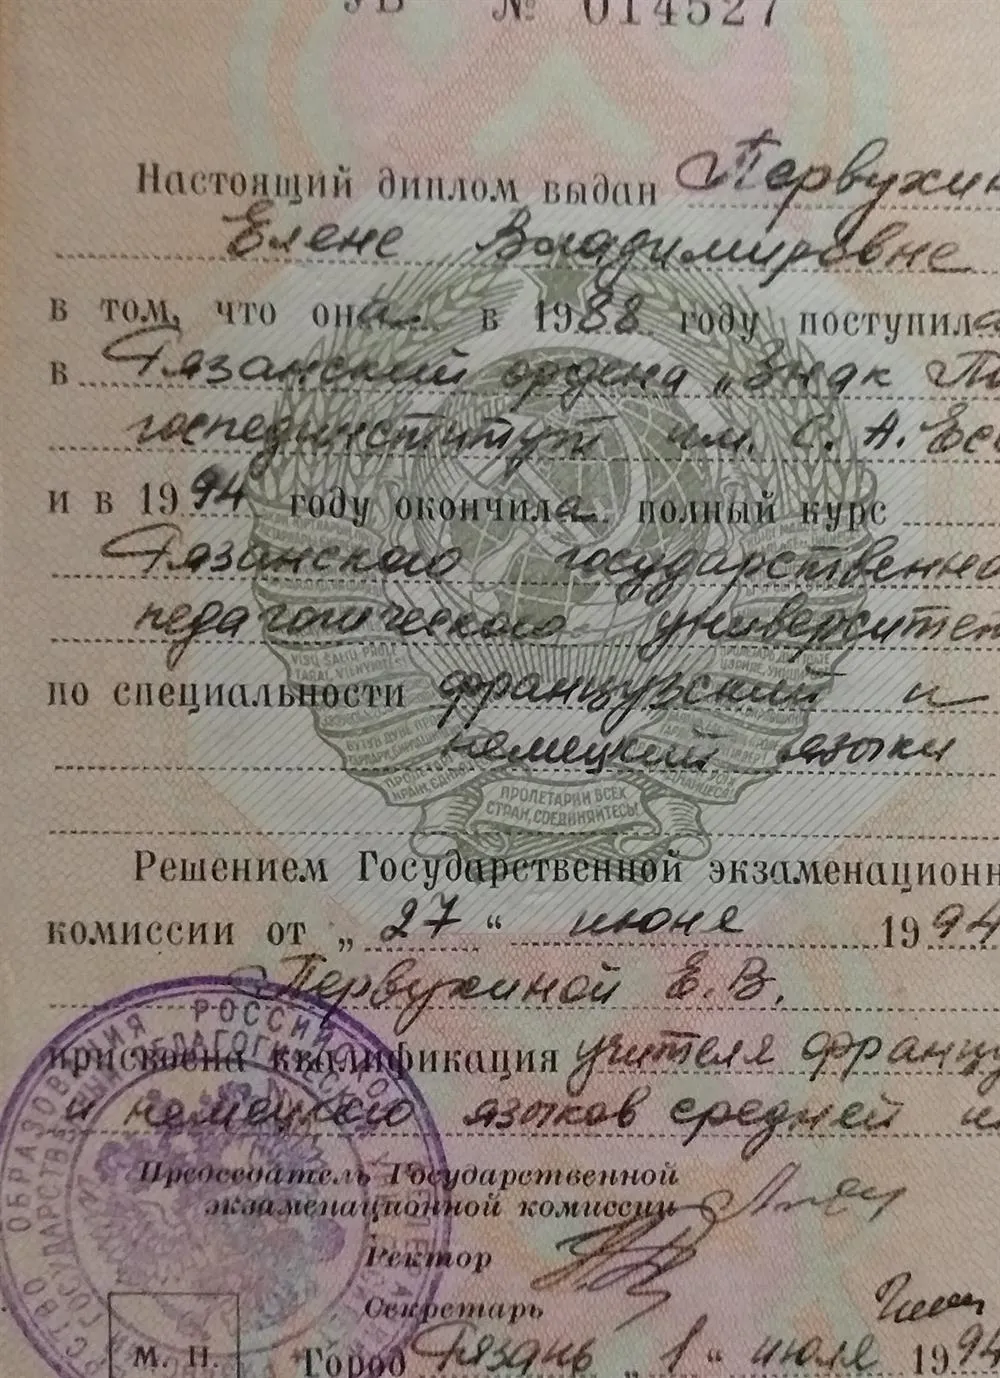 № 014527
Настоящий диплом выдан Первухин
Елене Владимировне
в том, что она в 1988 году поступила
в Рязанский ордена „Знак По
госпединститут им. С. А. Есе
и в 1994 году окончила полный курс
Рязанского государственно
педагогического университет
по специальности французский и
немецкий языки
VISŲ ŠALIŲ PROLE
TARAI, VIENYKITĖS!
ПРОЛЕТАРИИ ВСЕХ
СТРАН, СОЕДИНЯЙТЕСЬ!
Решением Государственной экзаменационн
комиссии от „27“ июня 1994
Первухиной Е. В.
присвоена квалификация учителя францу
и немецкого языков средней
Председатель Государственной
экзаменационной комиссии
Ректор
Секретарь
М. П. Город Рязань „1“ июля 1994